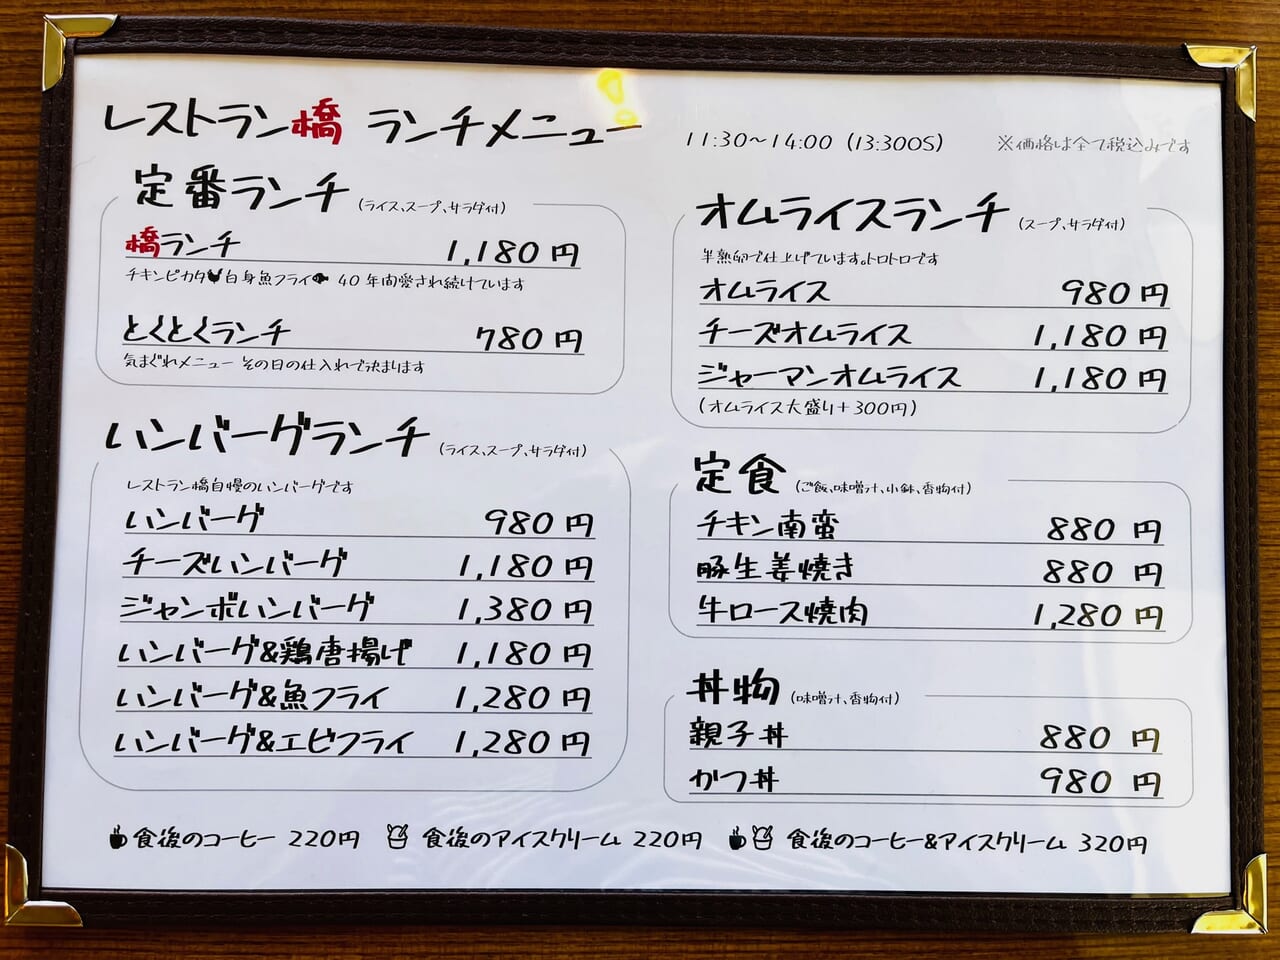 レストラン橋 ランチメニュー
11:30～14:00 (13:30OS)
※価格は全て税込みです
定番ランチ (ライス、スープ、サラダ付)
橋ランチ 1,180円
チキンピカタ 白身魚フライ 40年間愛され続けています
とくとくランチ 780円
気まぐれメニュー その日の仕入れで決まります
ハンバーグランチ (ライス、スープ、サラダ付)
レストラン橋自慢のハンバーグです
ハンバーグ 980円
チーズハンバーグ 1,180円
ジャンボハンバーグ 1,380円
ハンバーグ&鶏唐揚げ 1,180円
ハンバーグ&魚フライ 1,280円
ハンバーグ&エビフライ 1,280円
オムライスランチ (スープ、サラダ付)
半熟卵で仕上げています。トロトロです
オムライス 980円
チーズオムライス 1,180円
ジャーマンオムライス 1,180円
(オムライス大盛り+300円)
定食 (ご飯、味噌汁、小鉢、香物付)
チキン南蛮 880円
豚生姜焼き 880円
牛ロース焼肉 1,280円
丼物 (味噌汁、香物付)
親子丼 880円
かつ丼 980円
食後のコーヒー 220円 食後のアイスクリーム 220円 食後のコーヒー&アイスクリーム 320円